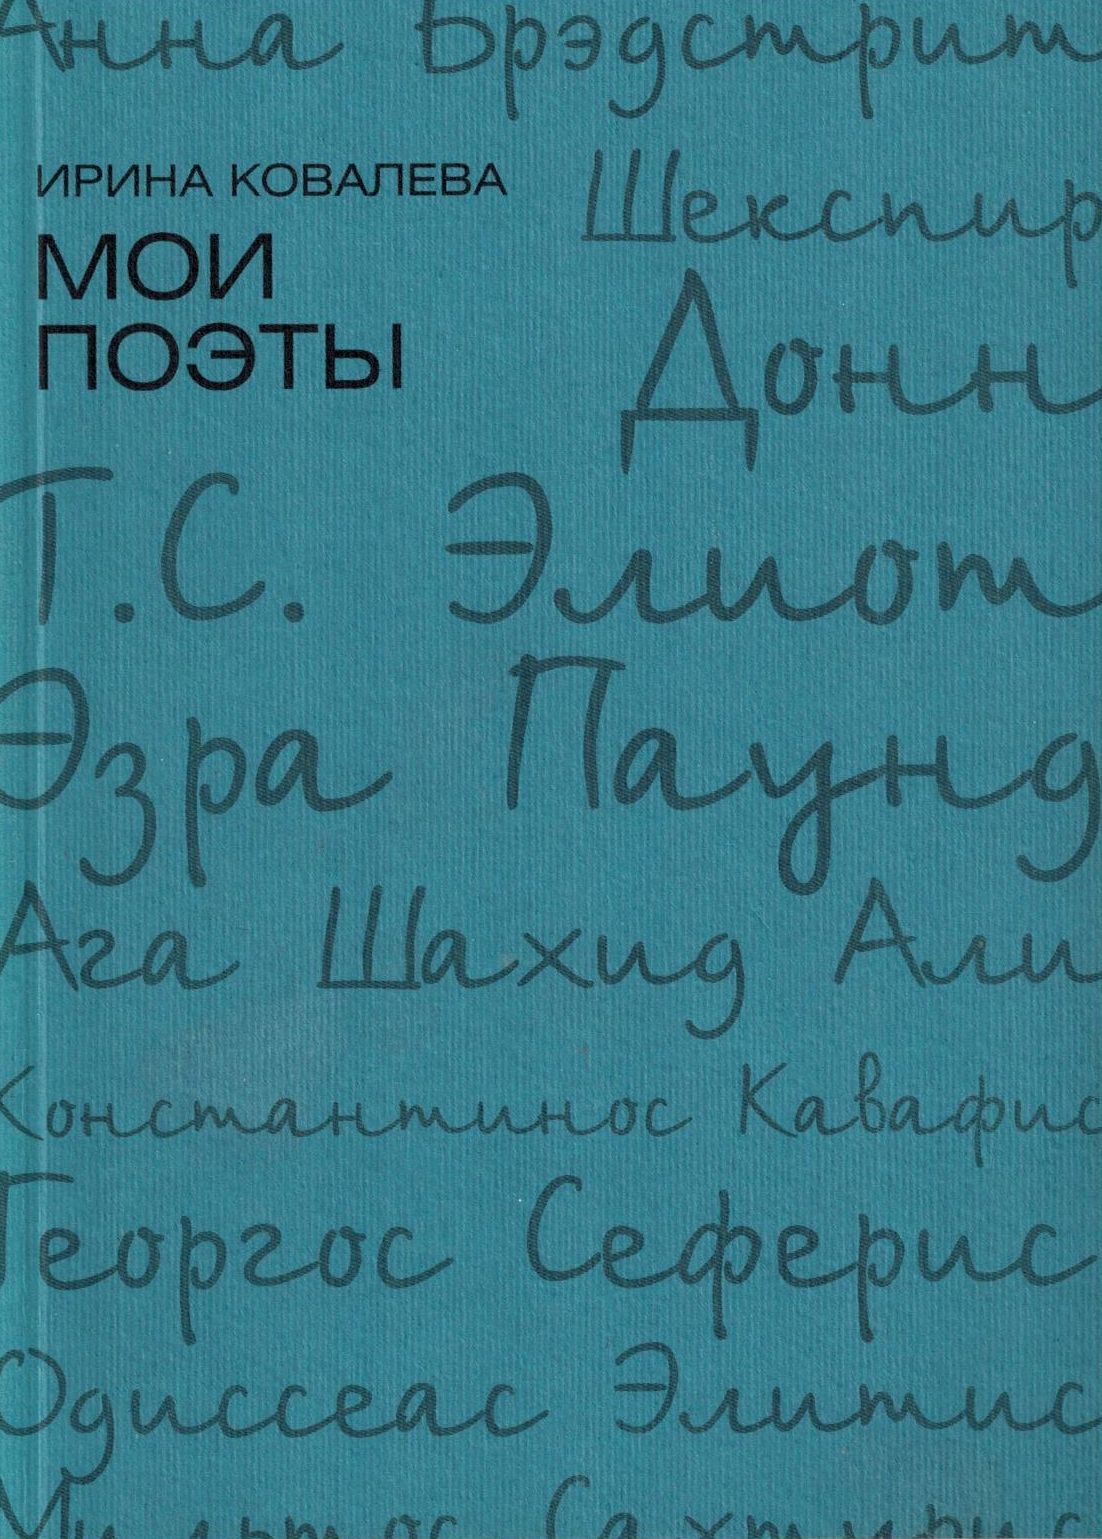 Анна Брэдстрит
ИРИНА КОВАЛЕВА
Шекспир
МОИ
ПОЭТЫ
Донн
Т.С. Элиот
Эзра Паунд
Ага Шахид Али
Константинос Кавафис
Георгос Сеферис
Одиссеас Элитис
Мильтос Сахтурис